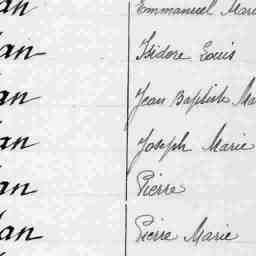 an Emmanuel Marie
an Isidore Louis
an Jean Baptiste Ma
an Joseph Marie
an Pierre
an Pierre Marie